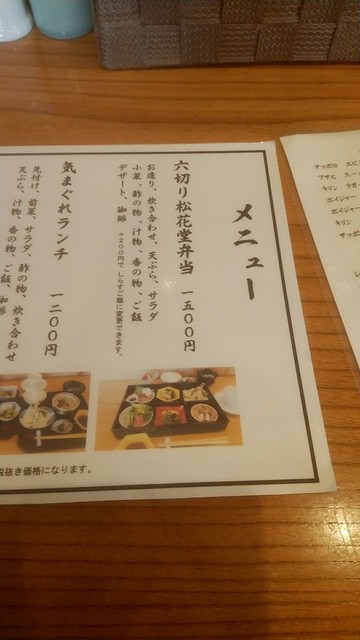 メニュー
六切り松花堂弁当 一五〇〇円
お造り、炊き合わせ、天ぷら、サラダ
小菜、酢の物、汁物、香の物、ご飯
デザート、珈琲 +200円で、しらすご飯に変更できます。
気まぐれランチ 一二〇〇円
先付け、前菜、サラダ、酢の物、炊き合わせ
天ぷら、汁物、香の物、ご飯、珈琲
税抜き価格になります。
サッポロ
アサヒ
キリン
ボイジャー
ボイジャー
キリン
サッポ